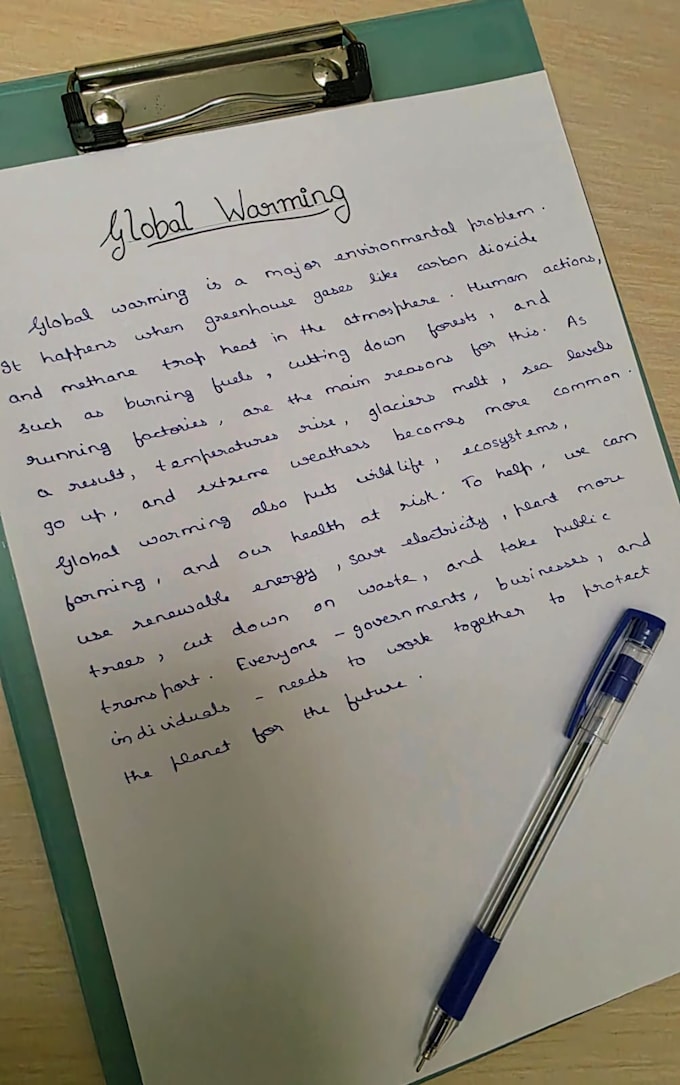 Global Warming
Global warming is a major environmental problem.
It happens when greenhouse gases like carbon dioxide
and methane trap heat in the atmosphere. Human actions,
such as burning fuels, cutting down forests, and
running factories, are the main reasons for this. As
a result, temperatures rise, glaciers melt, sea levels
go up, and extreme weathers becomes more common.
Global warming also puts wildlife, ecosystems,
farming, and our health at risk. To help, we can
use renewable energy, save electricity, plant more
trees, cut down on waste, and take public
transport. Everyone - governments, businesses, and
individuals - needs to work together to protect
the planet for the future.